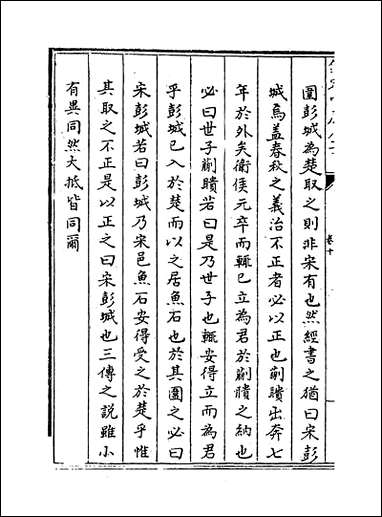 圍彭城為楚取之則非宋有也然經書之猶曰宋彭
城焉蓋春秋之義治不正者必以正也蒯聵出奔七
年於外矣衛侯元卒而輒已立為君於蒯聵之納也
必曰世子蒯聵若曰是乃世子也輒安得立而為君
乎彭城已入於楚而以之居魚石也於其圍之必曰
宋彭城若曰彭城乃宋邑魚石安得受之於楚乎惟
其取之不正是以正之曰宋彭城也三傳之說雖小
有異同然大抵皆同爾